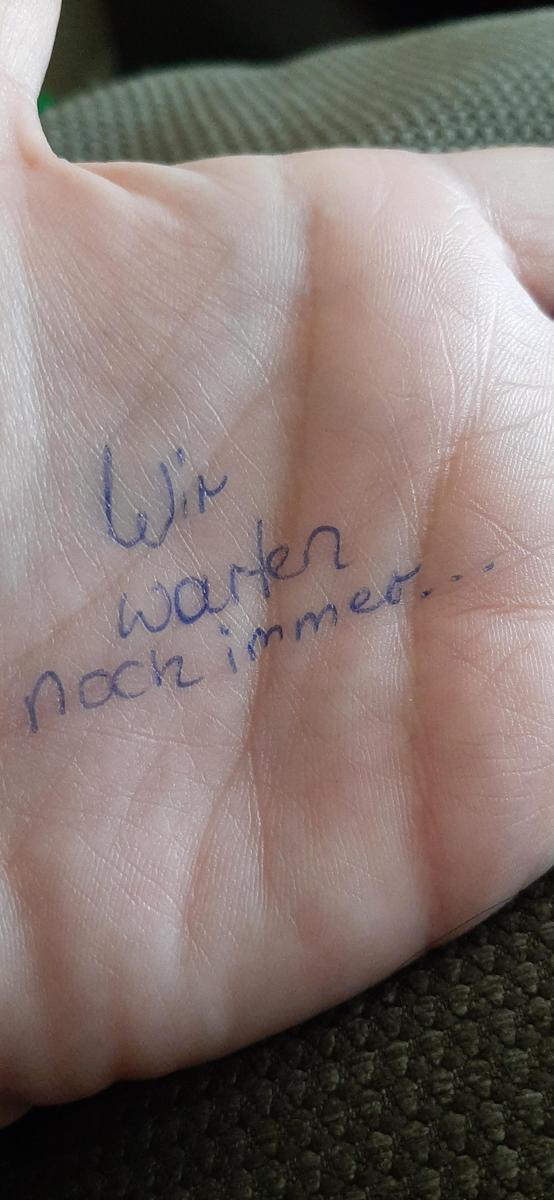 Wir
warten
noch immer...